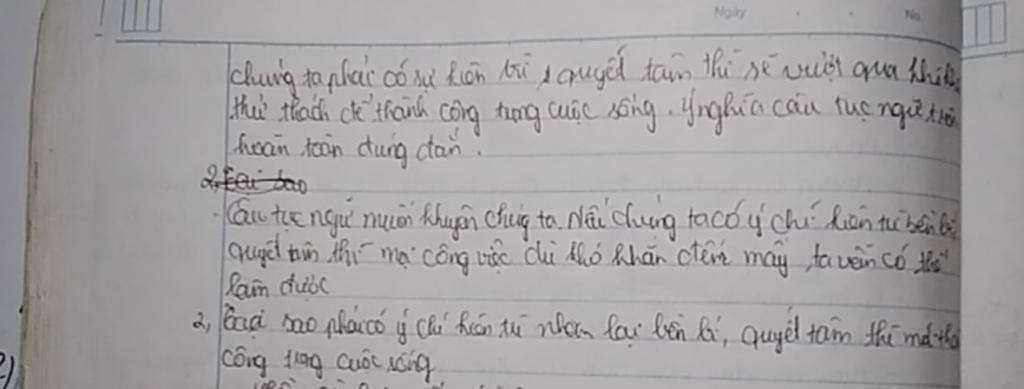 Ngày No.
chúng ta phải có sự kiên trì, quyết tâm thì sẽ vượt qua khó
thử thách để thành công trong cuộc sống. Ý nghĩa câu tục ngữ trên
hoàn toàn đúng đắn.
2, Tại sao
- Câu tục ngữ muốn khuyên chúng ta. Nếu chúng ta có ý chí kiên trì bền bỉ
quyết tâm thì mọi công việc dù khó khăn đến mấy, ta vẫn có thể
làm được
2, Tại sao phải có ý chí kiên trì nhẫn lại bền bỉ, quyết tâm thì mới
công trong cuộc sống